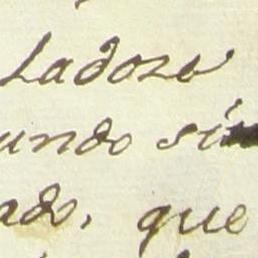 ladose
undo si
ado, que